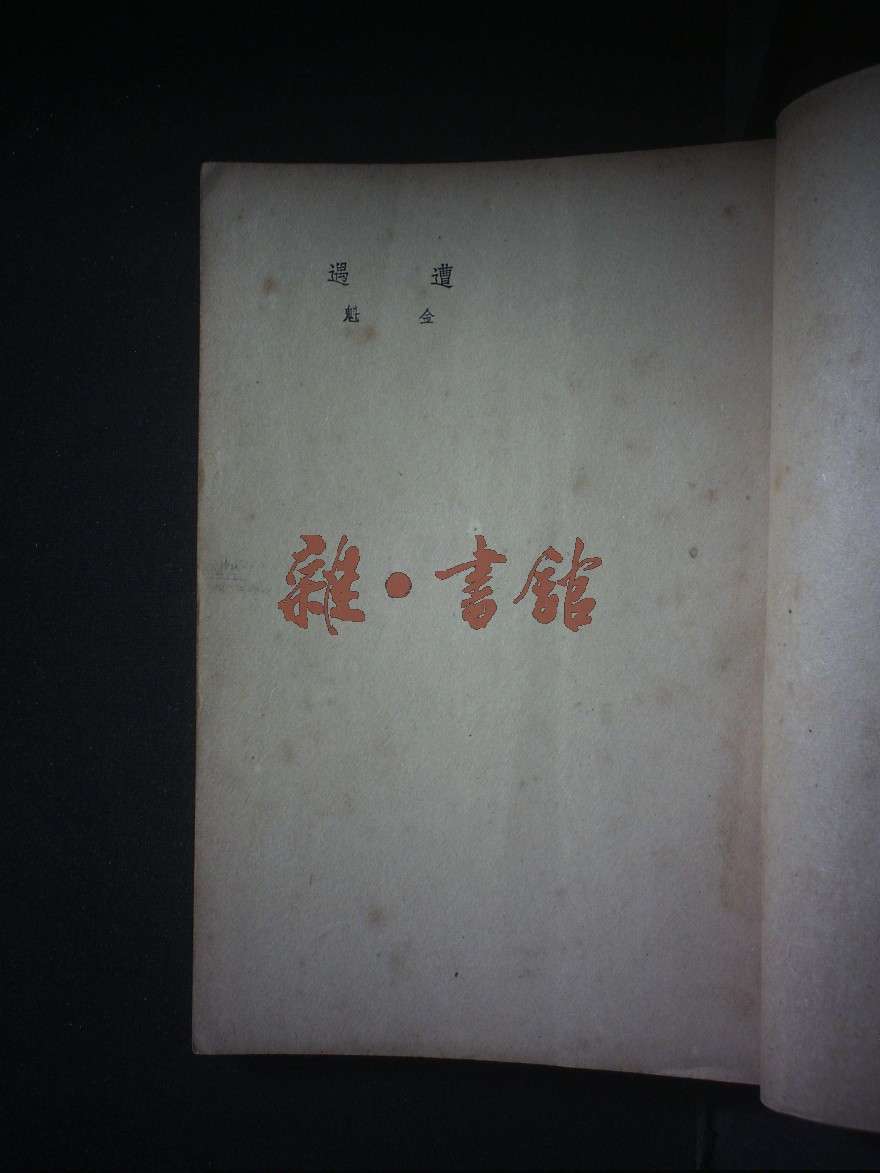 遭遇
金魁
雜·書館